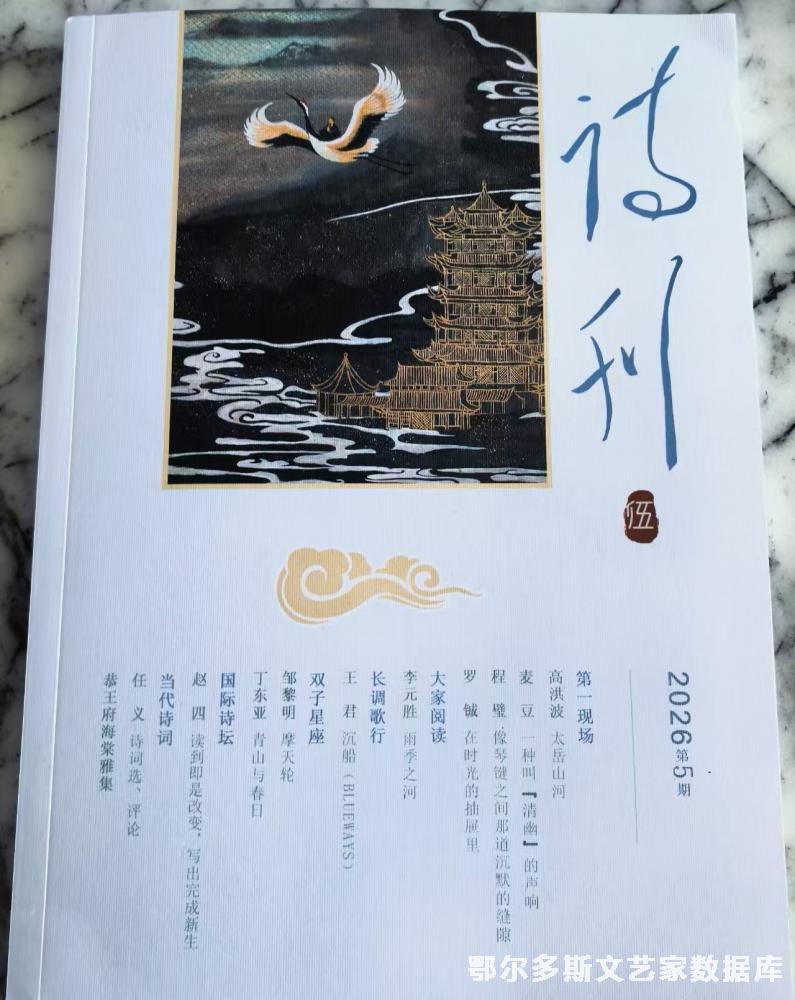 诗刊
伍
2026第5期
第一现场
高洪波 太岳山河
麦豆 一种叫『清幽』的声响
程璧 像琴键之间那道沉默的缝隙
罗铖 在时光的抽屉里
大家阅读
李元胜 雨季之河
长调歌行
王君 沉船（BLUEWAYS）
双子星座
邹黎明 摩天轮
丁东亚 青山与春日
国际诗坛
赵四 读到即是改变，写出完成新生
当代诗词
任义 诗词选、评论
恭王府海棠雅集
鄂尔多斯文艺家数据库